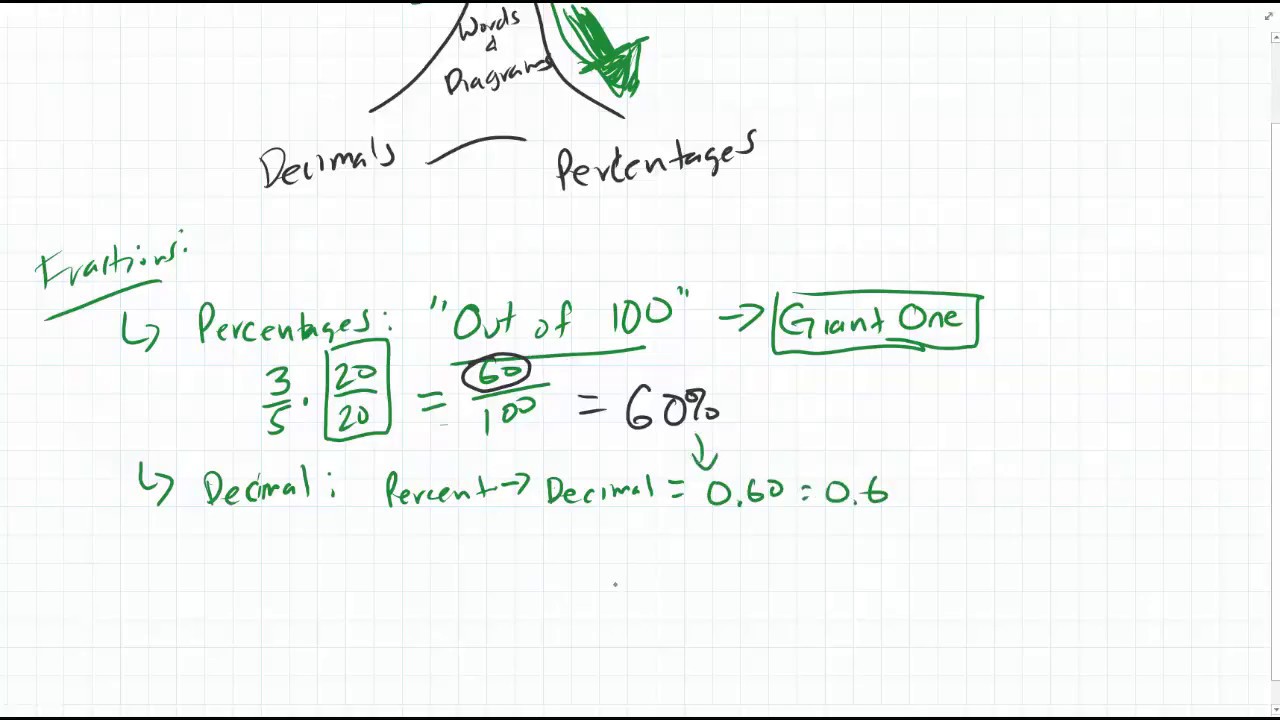 Words
&
Diagrams
Decimals
Percentages
Fractions:
↳ Percentages: "Out of 100" → Giant One
3/5 · 20/20 = 60/100 = 60%
↳ Decimal: Percent → Decimal = 0.60 = 0.6